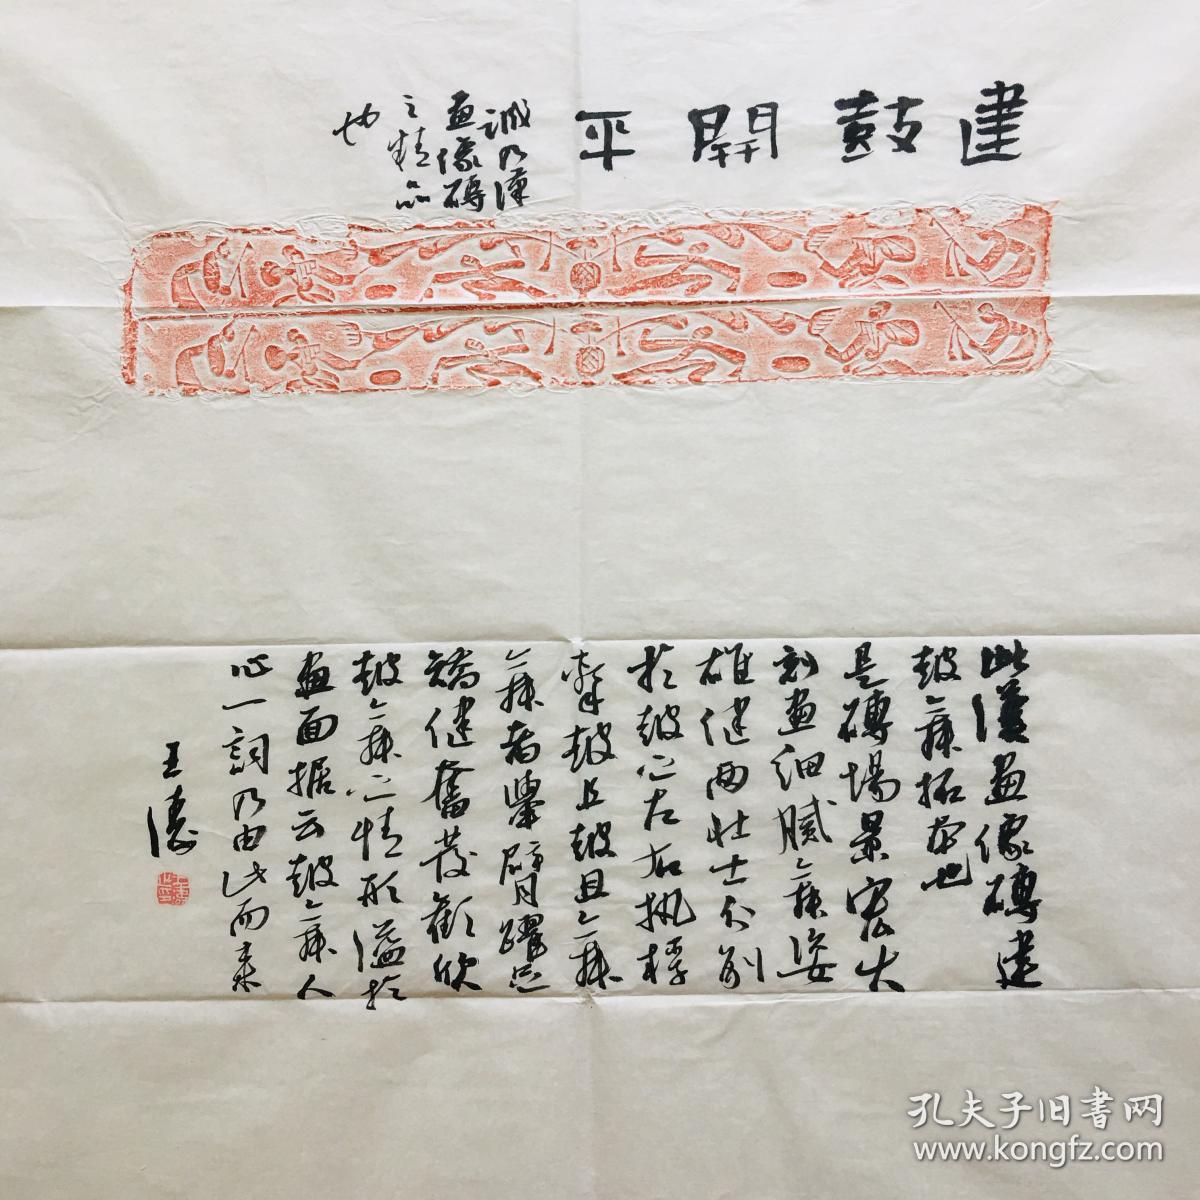 建鼓開平
誠乃漢
画像磚
之精品
也
此漢画像磚建
鼓舞拓本也
是磚場景宏大
刻画細膩舞姿
雄健两壮士分别
於鼓之左右执桴
擊鼓且鼓且舞
舞者舉臂躍足
矯健奮發歡欣
鼓舞之情形溢於
画面據云鼓舞人
心一詞乃由此而来
王
孔夫子旧书网
www.kongfz.com